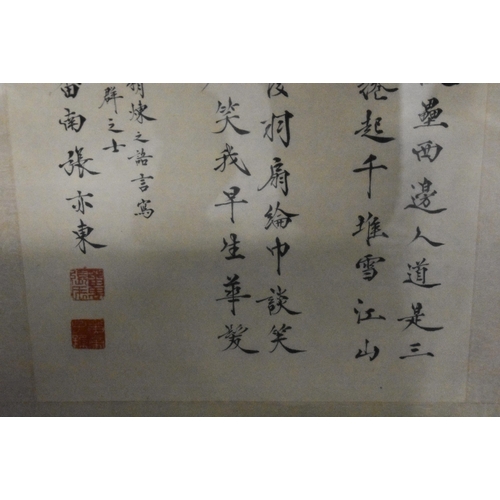 壘西邊人道是三
捲起千堆雪江山
羽扇綸巾談笑
笑我早生華髮
煉之語言寫
群之士
南張亦東